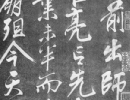 前出師
亮言先
業未半而
崩殂今天